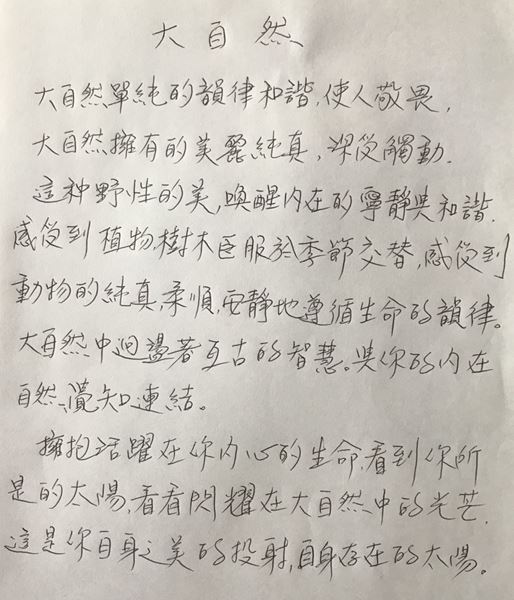 大自然
大自然單純的韻律和諧,使人敬畏,
大自然擁有的美麗純真,深受觸動.
這种野性的美,喚醒內在的寧靜與和諧.
感受到植物,樹木臣服於季節交替,感受到
動物的純真,柔順,安靜地遵循生命的韻律。
大自然中迴盪著亙古的智慧。與你的內在
自然覺知連結。
擁抱活躍在你內心的生命,看到你所
是的太陽,看看閃耀在大自然中的光芒.
這是你自身之美的投射,自身存在的太陽。